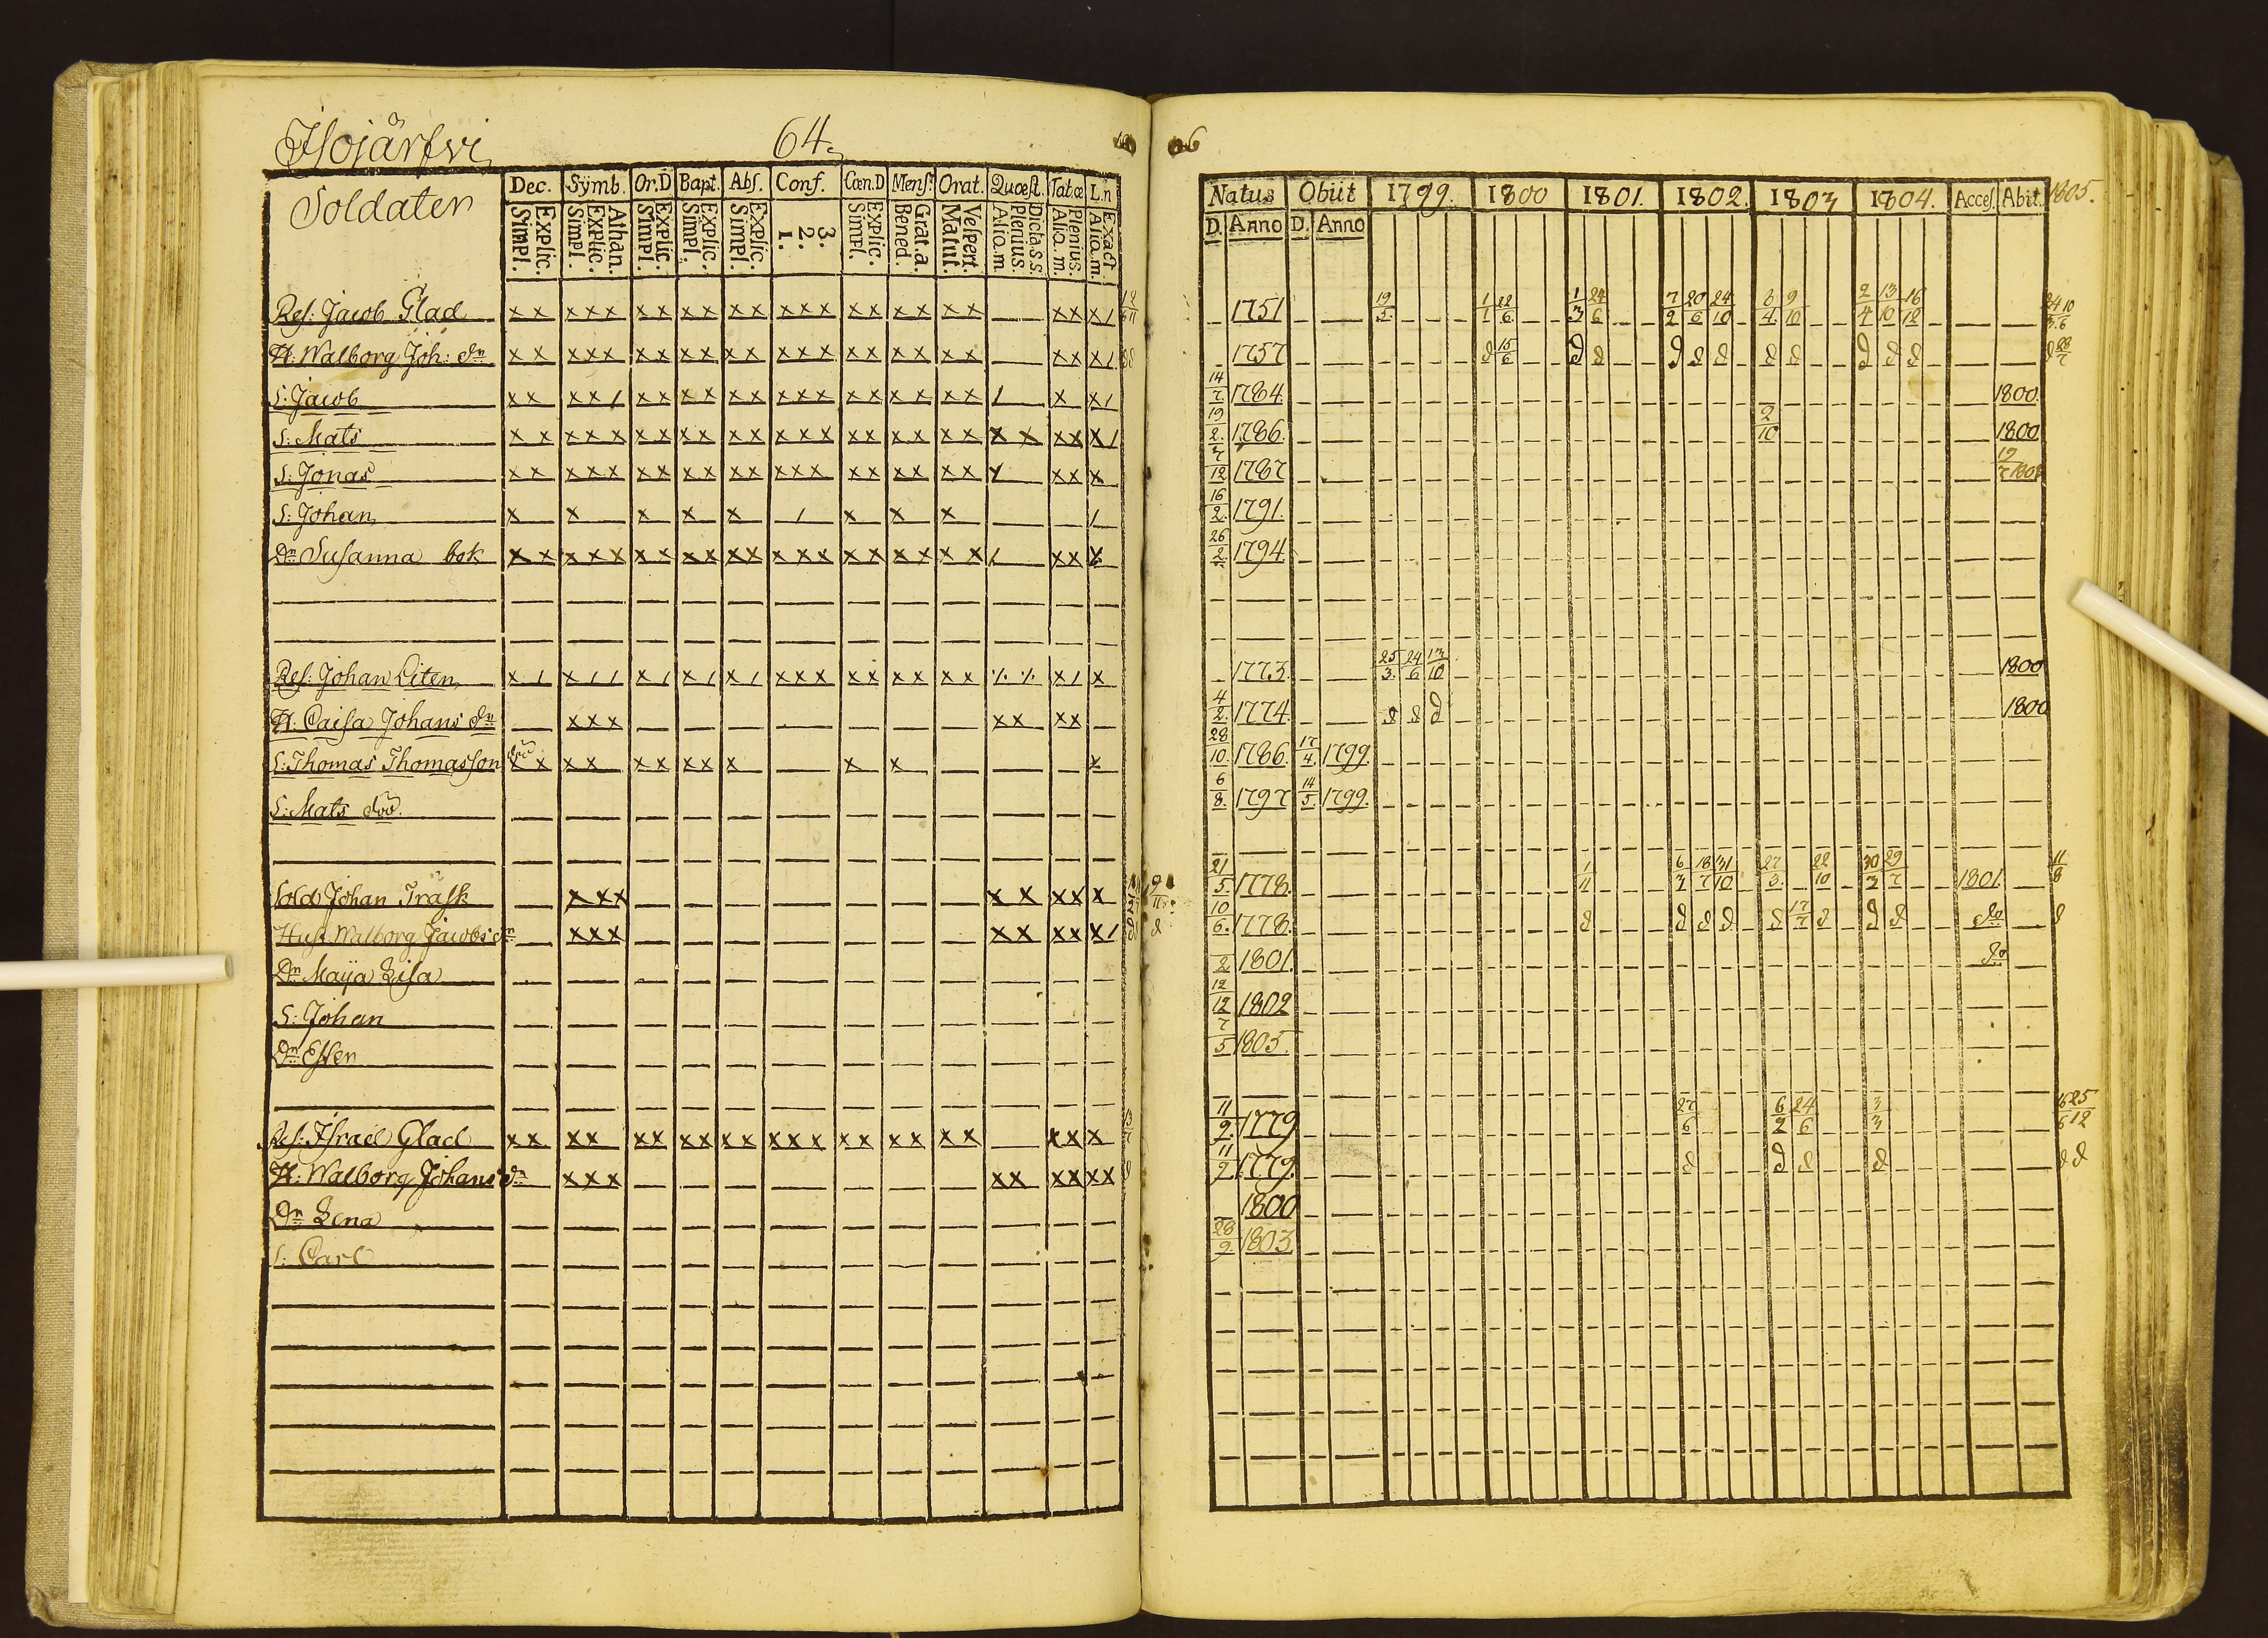 Isojärfvi 64.
Soldater
Dec. Symb. Or.D Bapt. Abs. Conf. Cœn.D Mens. Orat. Quæst. Tabæ L.n
Explic. Simpl. Athan. Explic. Simpl. Explic. Simpl. Explic. Simpl. Explic. Simpl. 3. 2. 1. Explic. Simpl. Grat.a. Bened. Vespert. Matut. Dicta.s.s. Plenius. Aliq.m. Plenius. Aliq.m. Exact Aliq.m.
Res: Jacob Glad
H: Walborg Joh: dr
S: Jacob
S: Mats
S: Jonas
S: Johan
Dr Susanna bok
Res: Johan Liten
H: Caisa Johans dr
S: Thomas Thomasson
S: Mats död.
Sold Johan Träsk
Hust. Walborg Jacobs dr
Dr Maija Lisa
S: Johan
Dr Essen
Res: Israel Glad
H: Walborg Johans dr
Dr Lena
S: Carl
Natus Obiit 1799. 1800 1801. 1802. 1803 1804. Acces. Abit. 1805.
D. Anno D. Anno
1751 19/5 1/1 22/6 1/3 24/6 7/2 20/6 24/10 3/4 9/10 2/4 13/10 16/12
1757 d 15/6 d d d d d d d d d d
14/7 1784 1800
19/2 1786. 2/10 1800
7/12 1787
16/2 1791.
26/2 1794
1773. 25/3 24/6 13/10 1800
4/2 1774 d d d 1800
28/10 1786 17/4 1799
6/8 1797 14/5 1799.
21/5 1778. 1/11 6/3 18/7 31/10 27/3 22/10 30/3 29/7 1801 11/8
10/6 1778. d d d d d 17/7 d d d do d
2 1801. do
12/12 1802
7/5 1805.
11/9 1779 27/6 6/2 24/6 3/3
11/9 1779. d d d d d d
1800
28/9 1803